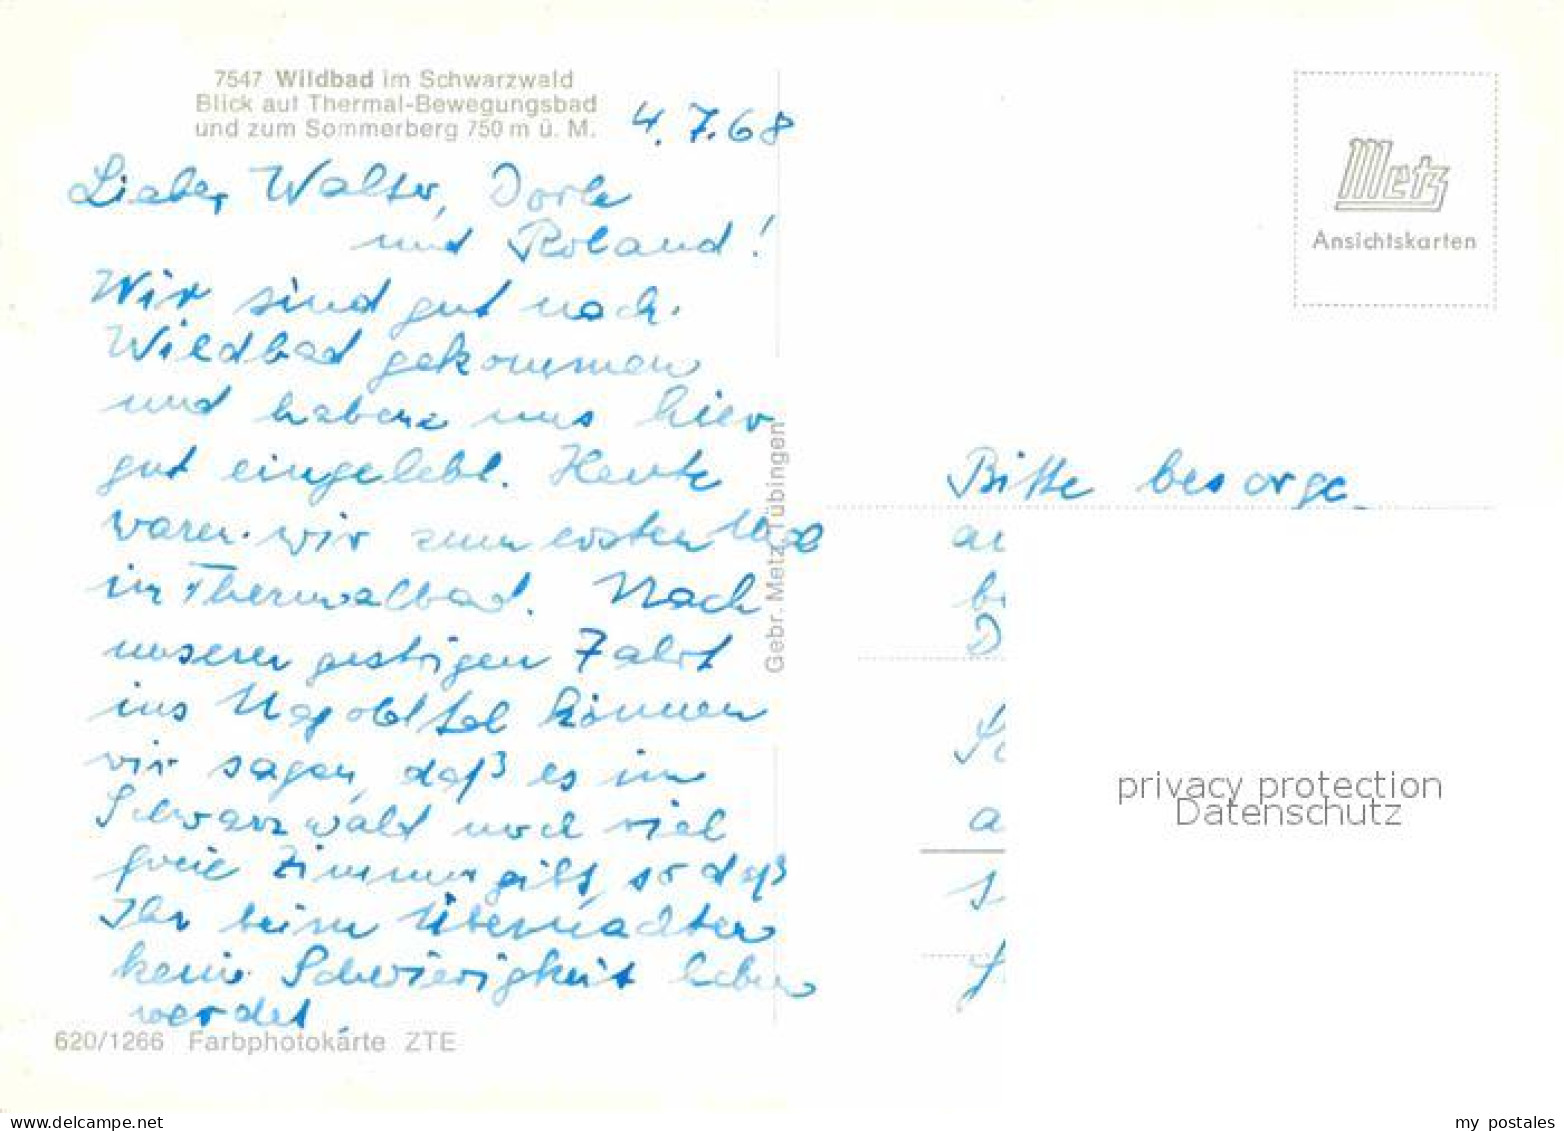 7547 Wildbad im Schwarzwald
Blick auf Thermal-Bewegungsbad
und zum Sommerberg 750 m ü. M.
4.7.68
Lieber Walter, Dorle
und Roland!
Wir sind gut nach
Wildbad gekommen
und haben uns hier
gut eingelebt. Heute
waren wir zum ersten Mal
im Thermalbad. Nach
unserer gestrigen Fahrt
ins Nagoldtal können
wir sagen, daß es im
Schwarzwald noch viel
freie Zimmer gibt, so daß
Ihr beim Übernachten
kein Schwierigkeit haben
werdet,
620/1266 Farbphotokarte ZTE
Gebr. Metz, Tübingen
Metz
Ansichtskarten
Bitte besorge
D
a
privacy protection
Datenschutz
my postales